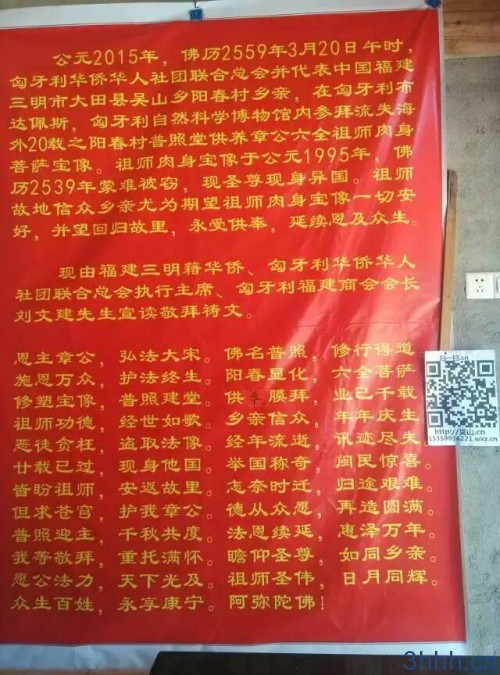 公元2015年，佛历2559年3月20日午时，
匈牙利华侨华人社团联合总会并代表中国福建
三明市大田县吴山乡阳春村乡亲，在匈牙利布
达佩斯，匈牙利自然科学博物馆内参拜流失海
外20载之阳春村普照堂供养章公六全祖师肉身
菩萨宝像。祖师肉身宝像于公元1995年，佛
历2539年蒙难被窃，现圣尊现身异国。祖师
故地信众乡亲尤为期望祖师肉身宝像一切安
好，并望回归故里，永受供奉，延续恩及众生。
现由福建三明籍华侨、匈牙利华侨华人
社团联合总会执行主席、匈牙利福建商会会长
刘文建先生宣读敬拜祷文。
恩主章公，弘法大宋。佛名普照，修行得道
施恩万众，护法终生。阳春显化，六全菩萨
修塑宝像，普照建堂。供奉膜拜，业已千载
祖师功德，经世如歌。乡亲信众，年年庆生
恶徒贪枉，盗取法像。经年流逝，讯迹尽失
廿载已过，现身他国。举国称奇，闽民惊喜。
皆盼祖师，安返故里。怎奈时迁，归途艰难。
但求苍宫，护我章公。德从众愿，再造圆满。
普照迎主，千秋共度。法恩续延，惠泽万年。
我等敬拜，重托满怀。瞻仰圣尊，如同乡亲。
恩公法力，天下光及。祖师圣伟，日月同辉。
众生百姓，永享康宁。阿弥陀佛！
扫一扫
http://吴山.
15359934221.wxz.cn
3hhh.cn